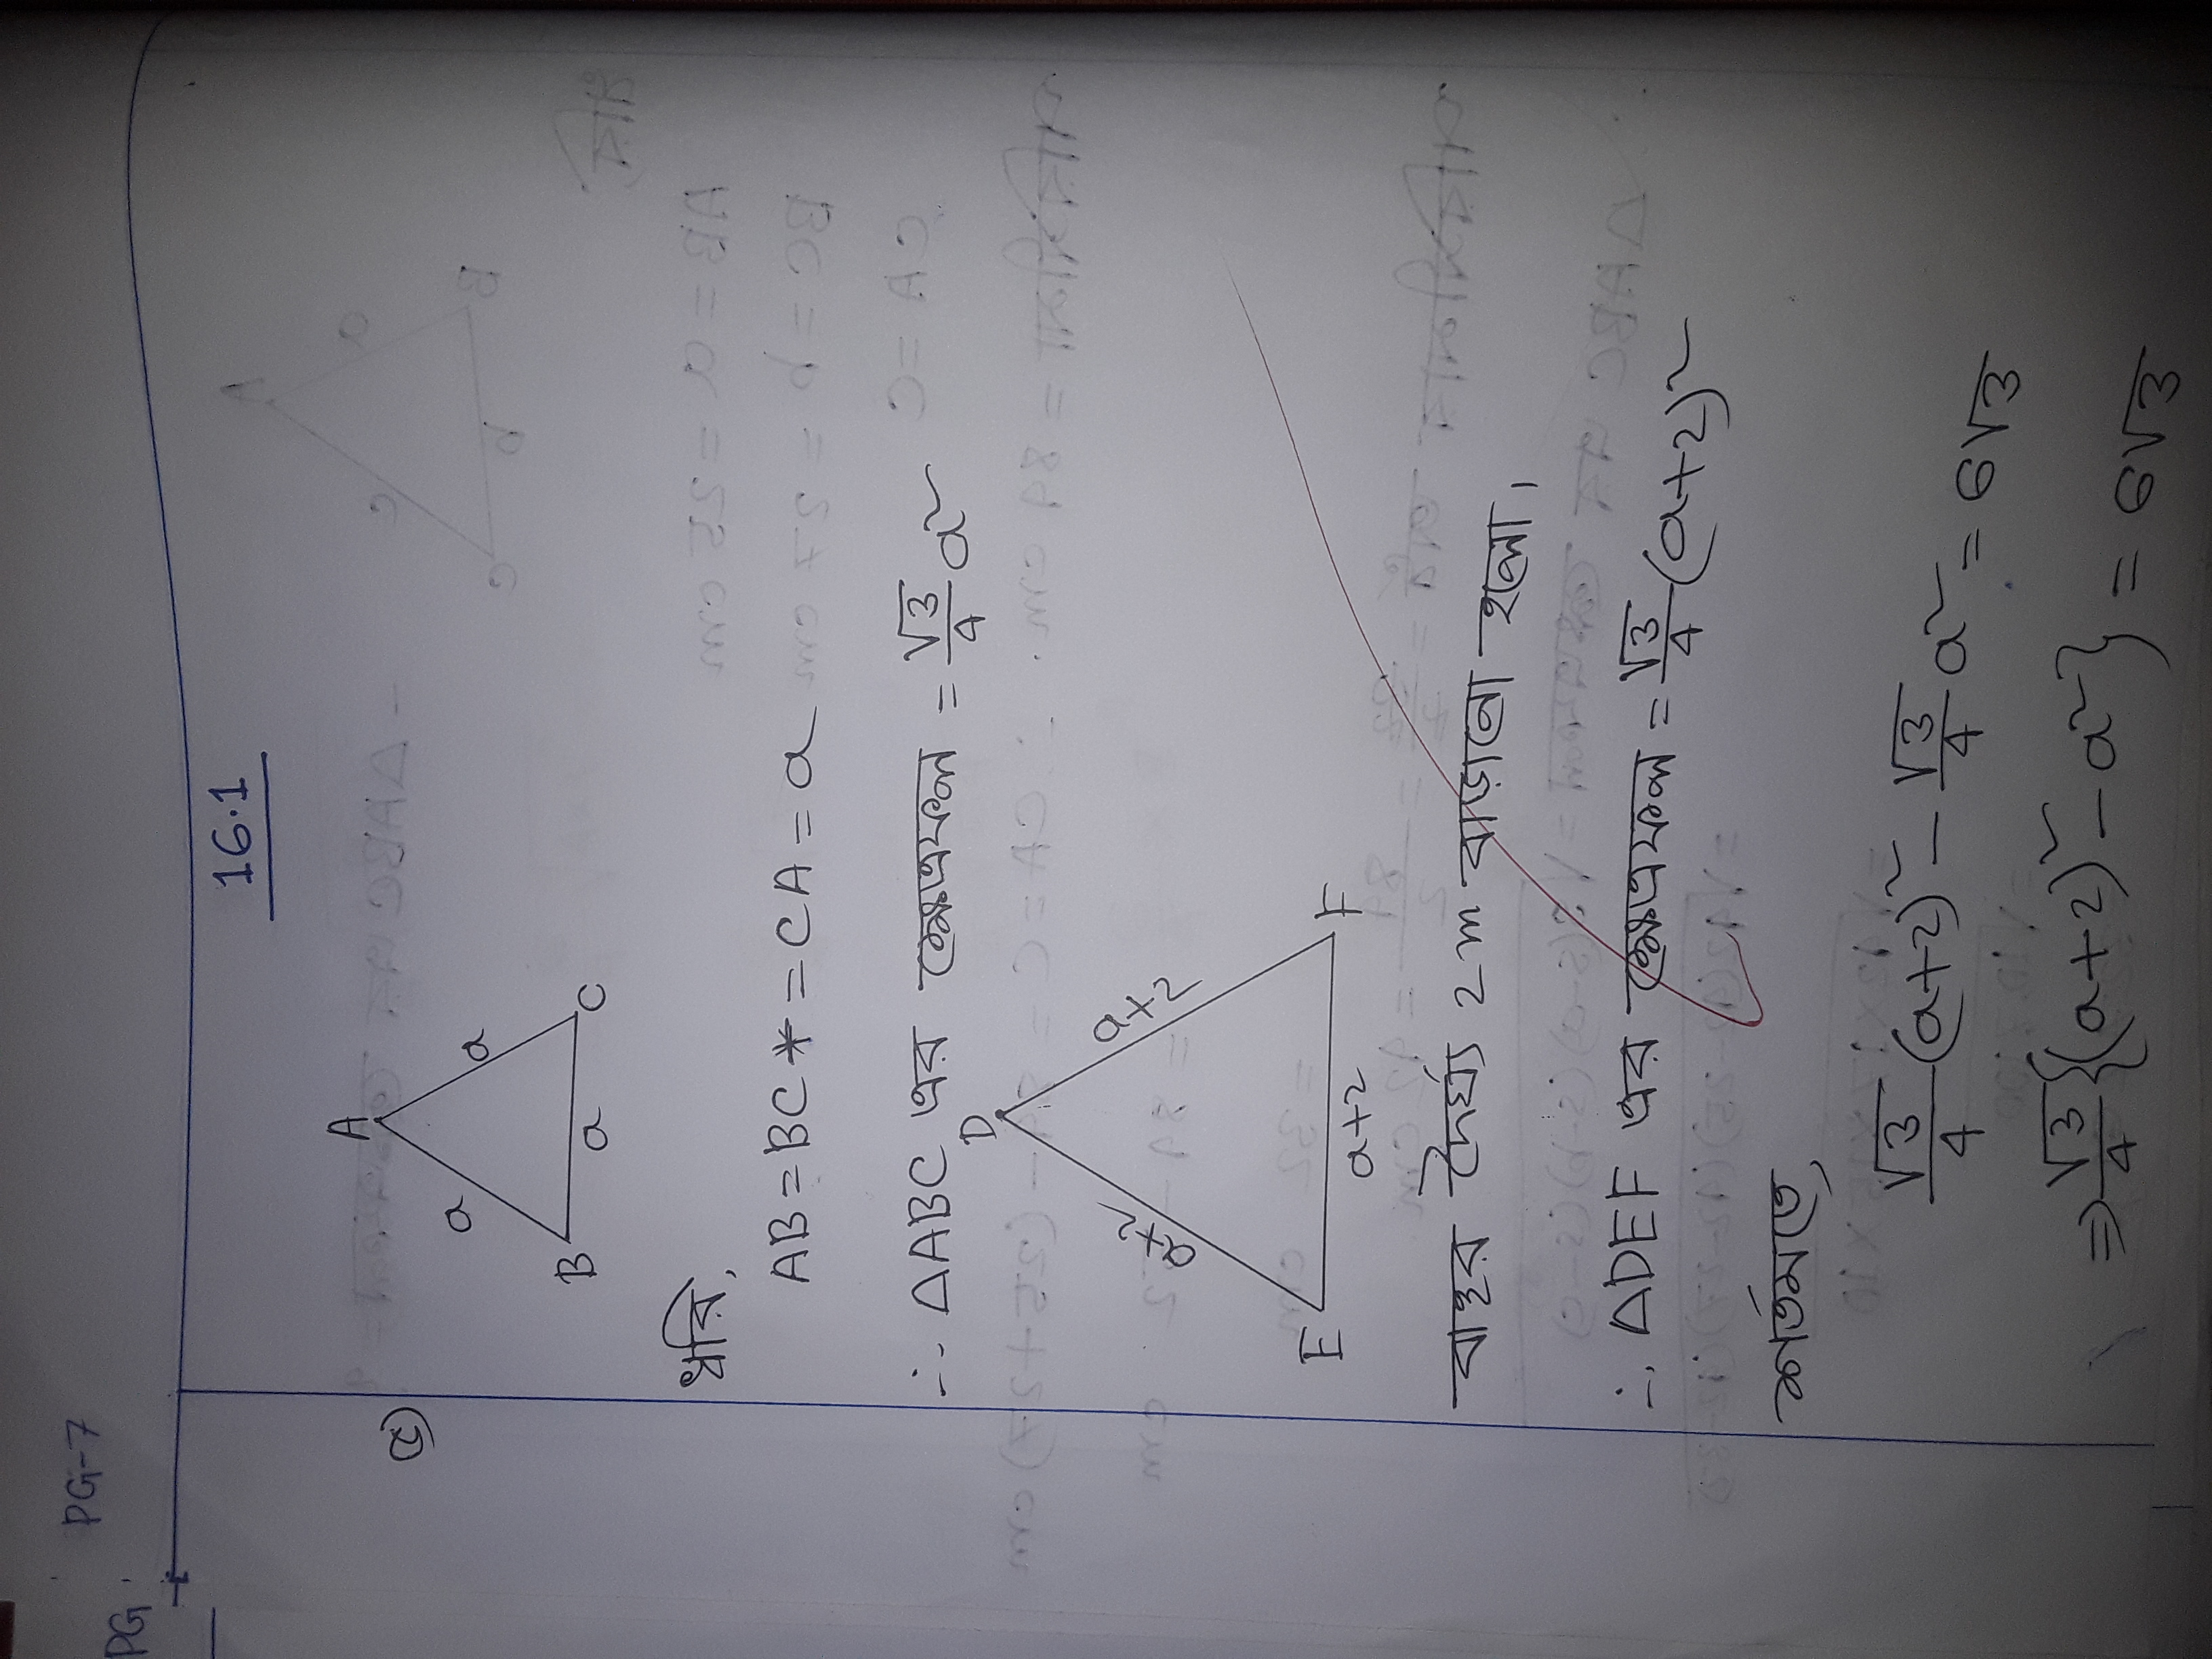 PG-7
PG
16.1
A
a
a
B
a
C
ধরি,
AB = BC * = CA = a
∴ ΔABC এর ক্ষেত্রফল = √3/4 a²
D
a+2
a+2
E
a+2
F
বাহুর দৈর্ঘ্য 2 m বাড়ানো হলো।
∴ ΔDEF এর ক্ষেত্রফল = √3/4 (a+2)²
শর্তমতে,
√3/4 (a+2)² - √3/4 a² = 6√3
⇒ √3/4 {(a+2)² - a²} = 6√3